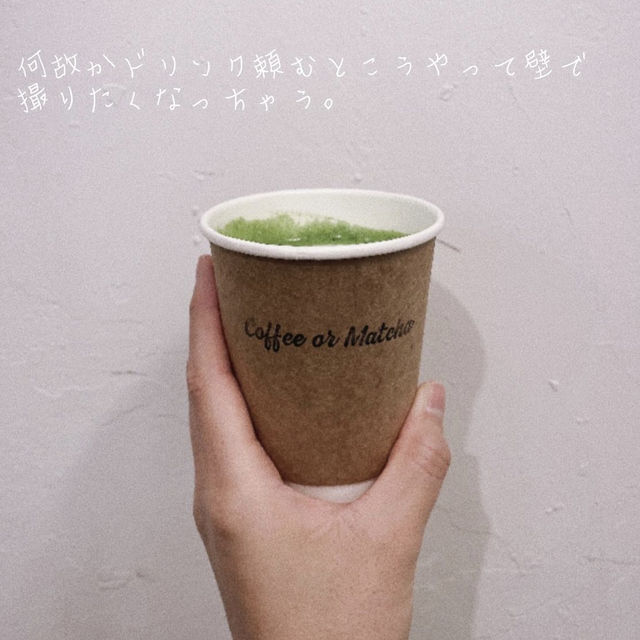 何故かドリンク頼むとこうやって壁で
撮りたくなっちゃう。
Coffee or Matcha